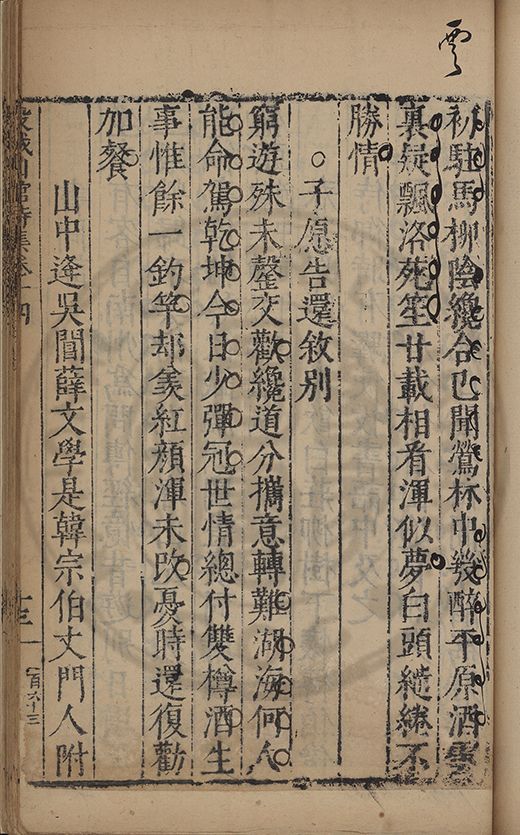 初駐馬柳陰纔合已聞鶯杯中幾醉平原酒雲
裏疑飄洛苑笙廿載相看渾似夢白頭繾綣不
勝情
子愿告還敘别
窮遊殊未罄交歡纔道分攜意轉難湖海何人
能命駕乾坤今日少彈冠世情總付雙樽酒生
事惟餘一釣竿却羨紅顔渾未改憂時還復勸
加餐
山中逢吳閶薛文學是韓宗伯丈門人附
榖城山館詩集卷十四
十三